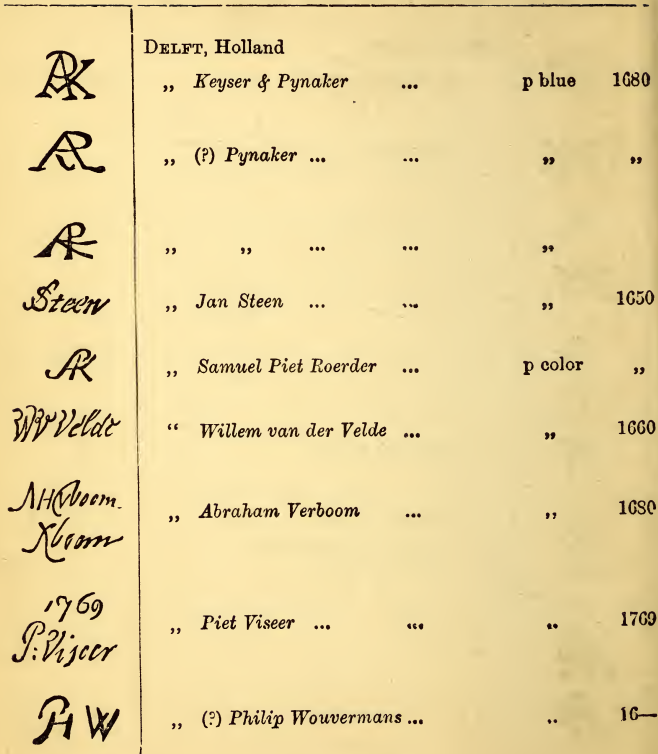 DELFT, Holland
APK „ Keyser & Pynaker ... p blue 1680
AR „ (?) Pynaker ... ... „ „
„ „ ... ... „
Steen „ Jan Steen ... ... „ 1650
„ Samuel Piet Roerder ... p color „
WV Velde “ Willem van der Velde ... „ 1660
„ Abraham Verboom ... „ 1680
1769
P: Viseer „ Piet Viseer ... ... „ 1769
PH W „ (?) Philip Wouvermans ... „ 16—